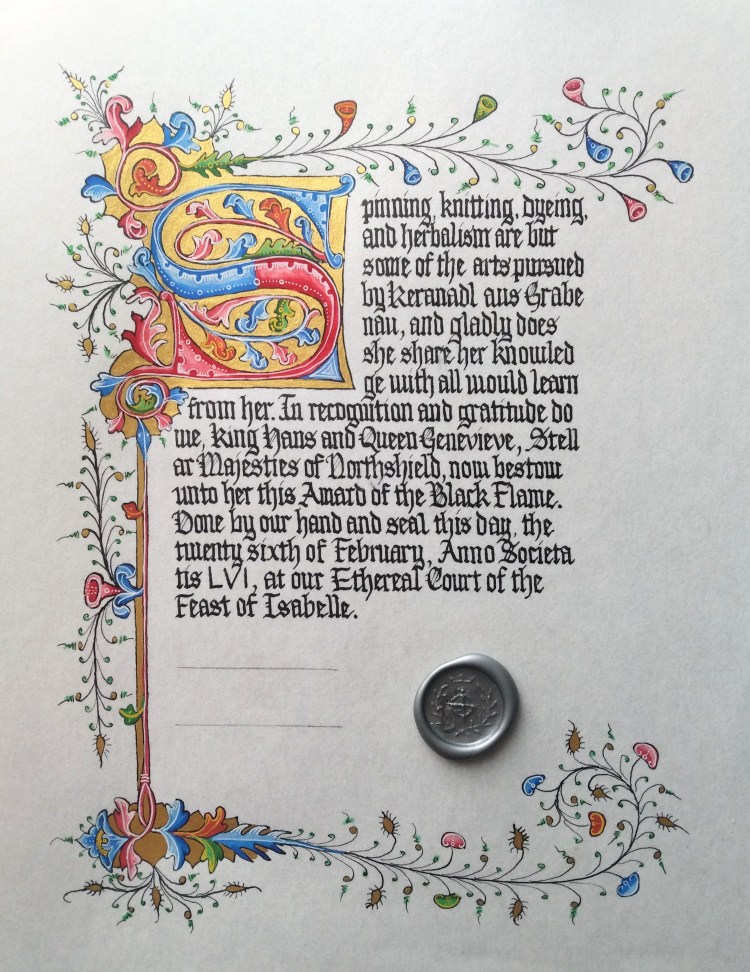 Spinning, knitting, dyeing,
and herbalism are but
some of the arts pursued
by Keranadl aus Grabe
nau, and gladly does
she share her knowled
ge with all would learn
from her. In recognition and gratitude do
we, King Hans and Queen Genevieve, Stell
ar Majesties of Northshield, now bestow
unto her this Award of the Black Flame.
Done by our hand and seal this day, the
twenty sixth of February, Anno Societa
tis LVI, at our Ethereal Court of the
Feast of Isabelle.